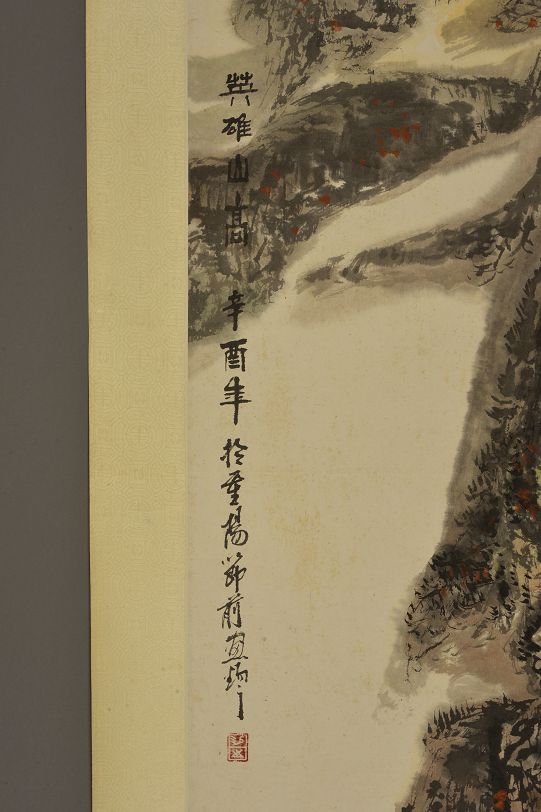 英雄山高 辛酉年於重陽節前畫